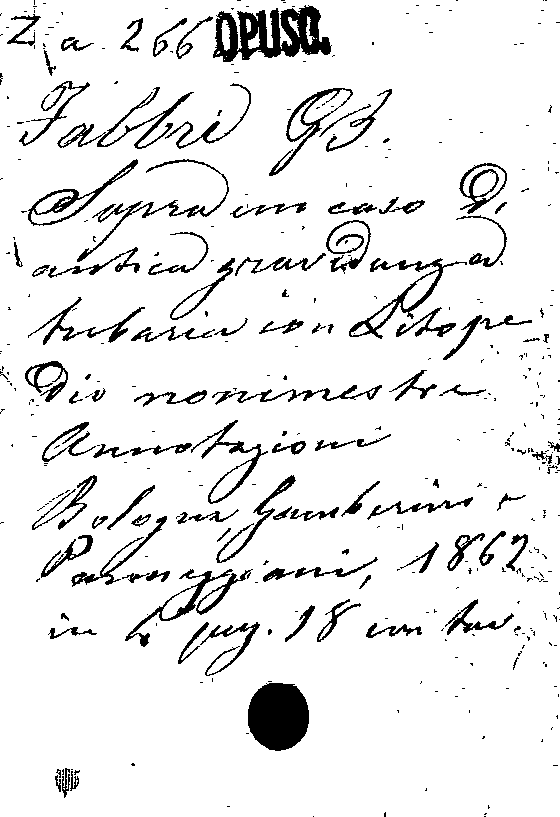 Z a 266 OPUSC.
Fabbri GB.
Sopra un caso di
antica gravidanza
tubaria con Litope
dio nonimestre
Annotazioni
Bologna, Gamberini e
Parmeggiani, 1862
in 4 pag. 18 con tav.